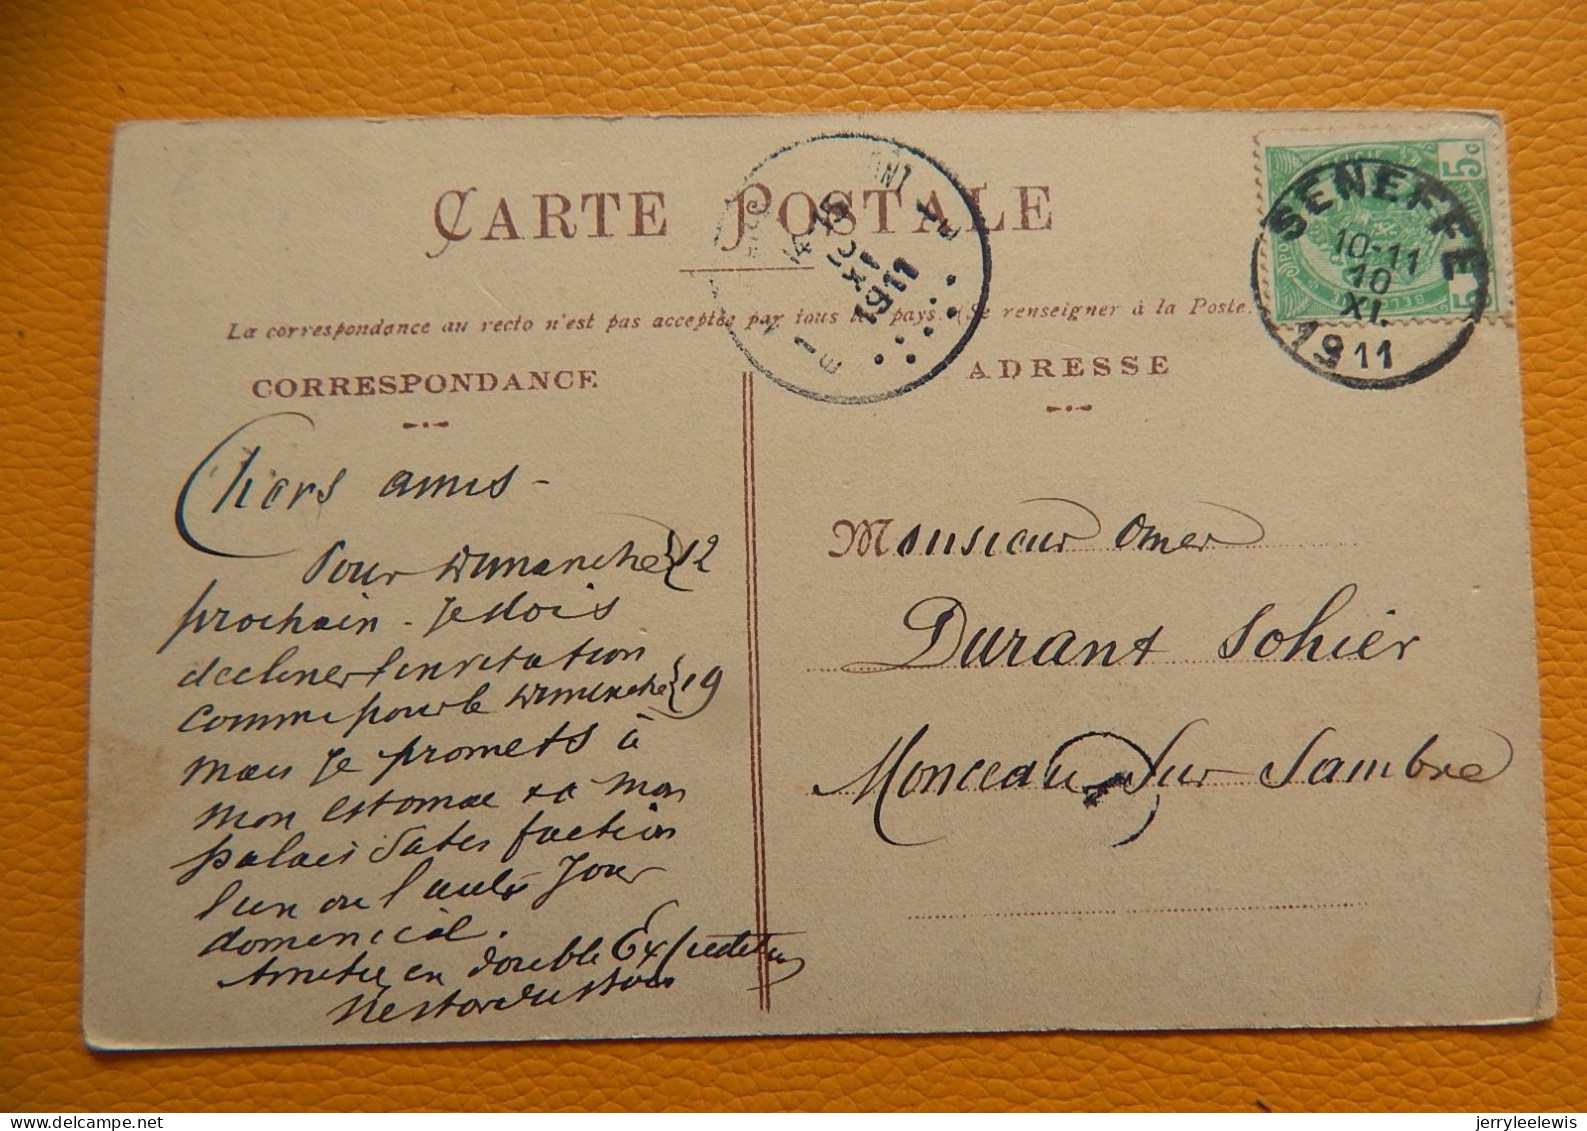 CARTE POSTALE
La correspondance au recto n'est pas acceptée par tous les pays. (Se renseigner à la Poste.
CORRESPONDANCE
ADRESSE
5c
5
SENEFFE
10-11
10
XI.
1911
XI
1911
Chers amis -
Pour Dimanche } 12
prochain - Je dois
decliner l'invitation
comme pour le Dimanche } 19
mais je promets à
mon estomac et a mon
palais Satisfaction
l'un ou l'autre Jour
dominical.
Amitié en double Expedition
Nestor
Monsieur Omer
Durant Sohier
Monceau-Sur Sambre
www.delcampe.net
jerryleelewis